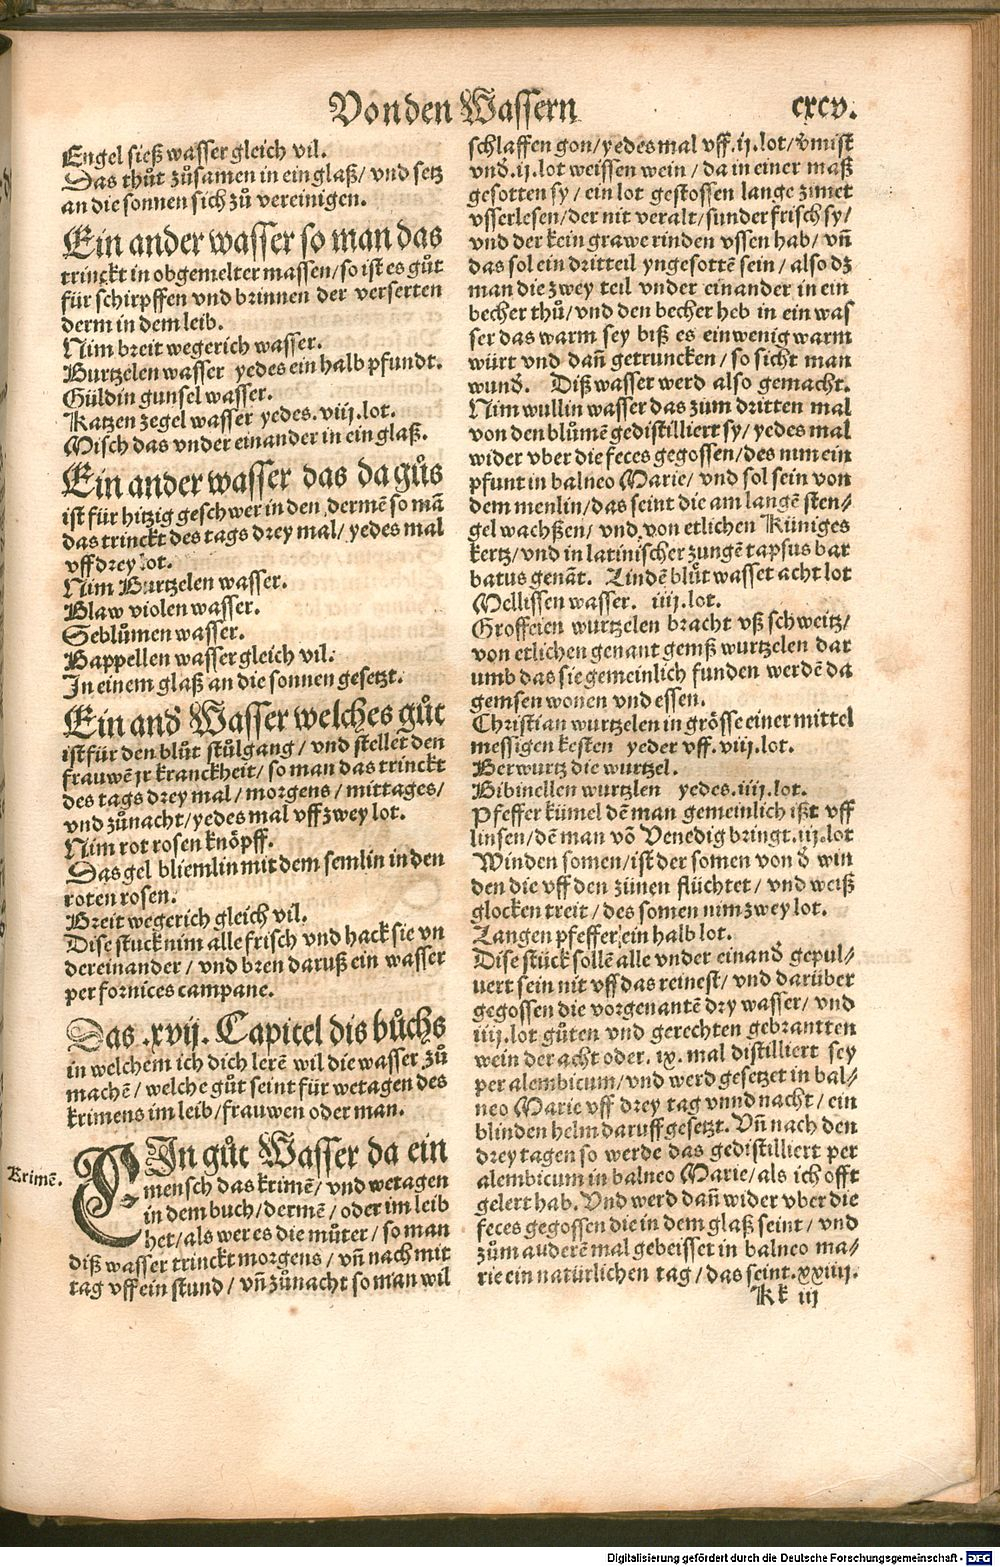 Von den Wassern cxcv.
Engel sieß wasser gleich vil.
Das thůt zůsamen in ein glaß/ vnd setz
an die sonnen sich zů vereinigen.
Ein ander wasser so man das
trinckt in obgemelter massen/ so ist es gůt
für schirpffen vnd brinnen der verserten
derm in dem leib.
Nim breit wegerich wasser.
Burtzelen wasser yedes ein halb pfundt.
Güldin gunsel wasser.
Katzen zegel wasser yedes. viij. lot.
Misch das vnder einander in ein glaß.
Ein ander wasser das da gůs
ist für hitzig geschwer in den dermē so mā
das trinckt des tags drey mal/ yedes mal
vff drey lot.
Nim Burtzelen wasser.
Blaw violen wasser.
Seblůmen wasser.
Bappellen wasser gleich vil.
In einem glaß an die sonnen gesetzt.
Ein and̄ Wasser welches gůt
ist für den blůt stůlgang/ vnd stellet den
frauwē jr kranckheit/ so man das trinckt
des tags drey mal/ morgens/ mittages/
vnd zůnacht/ yedes mal vff zwey lot.
Nim rot rosen knöpff.
Das gel bliemlin mit dem semlin in den
roten rosen.
Breit wegerich gleich vil.
Dise stuck nim alle frisch vnd hack sie vn
dereinander/ vnd bren daruß ein wasser
per fornices campane.
Das .xvij. Capitel dis bůchs
in welchem ich dich lerē wil die wasser zů
machē/ welche gůt seint für wetagen des
krimens im leib/ frauwen oder man.
Krimē.
EIn gůt Wasser da ein
mensch das krimē/ vnd wetagen
in dem buch/ dermē/ oder im leib
het/ als wer es die můter/ so man
diß wasser trinckt morgens/ vn̄ nach mit
tag vff ein stund/ vn̄ zůnacht so man wil
schlaffen gon/ yedes mal vff. ij. lot/ v̄mist
vnd̄. ij. lot weissen wein/ da in einer maß
gesotten sy/ ein lot gestossen lange zimet
vsserlesen/ der nit veralt/ sunder frisch sy/
vnd der kein grawe rinden vssen hab/ vn̄
das sol ein dritteil yngesottē sein/ also dz
man die zwey teil vnder einander in ein
becher thů/ vnd den becher heb in ein was
ser das warm sey biß es ein wenig warm
würt vnd dan̄ getruncken/ so sicht man
wund̄. Diß wasser werd also gemacht.
Nim wullin wasser das zum dritten mal
von den blůmē gedistilliert sy/ yedes mal
wider vber die feces gegossen/ des nim ein
pfunt in balneo Marie/ vnd sol sein von
dem menlin/ das seint die am langē sten⸗
gel wachßen/ vnd von etlichen Küniges
kertz/ vnd in latinischer zungē tapsus bar
batus genāt. Lindē blůt wasser acht lot
Mellissen wasser. iiij. lot.
Groffeien wurtzelen bracht vß schweitz/
von etlichen genant gemß wurtzelen dar
umb das sie gemeinlich funden werdē da
gemsen wonen vnd essen.
Christian wurtzelen in grösse einer mittel
messigen kesten yeder vff. viij. lot.
Berwurtz die wurtzel.
Bibinellen wurtzlen yedes. iiij. lot.
Pfeffer kümel dē man gemeinlich ißt vff
linsen/ dē man vō Venedig bringt. iij. lot
Winden somen/ ist der somen von d̄ win
den die vff den zünen flüchtet/ vnd weiß
glocken treit/ des somen nim zwey lot.
Langen pfeffer ein halb lot.
Dise stück sollē alle vnder einand̄ gepul⸗
uert sein nit vff das reinest/ vnd darüber
gegossen die vorgenantē dry wasser/ vnd
iiij. lot gůten vnd gerechten gebrantten
wein der acht oder. ix. mal distilliert sey
per alembicum/ vnd werd gesetzet in bal⸗
neo Marie vff drey tag vnnd nacht/ ein
blinden helm daruff gesetzt. Vn̄ nach den
drey tagen so werde das gedistilliert per
alembicum in balneo Marie/ als ich offt
gelert hab. Vnd werd dan̄ wider vber die
feces gegossen die in dem glaß seint/ vnd
zům anderē mal gebeisset in balneo ma⸗
rie ein natürlichen tag/ das seint. xxiiij.
Kk iij
Digitalisierung gefördert durch die Deutsche Forschungsgemeinschaft - DFG